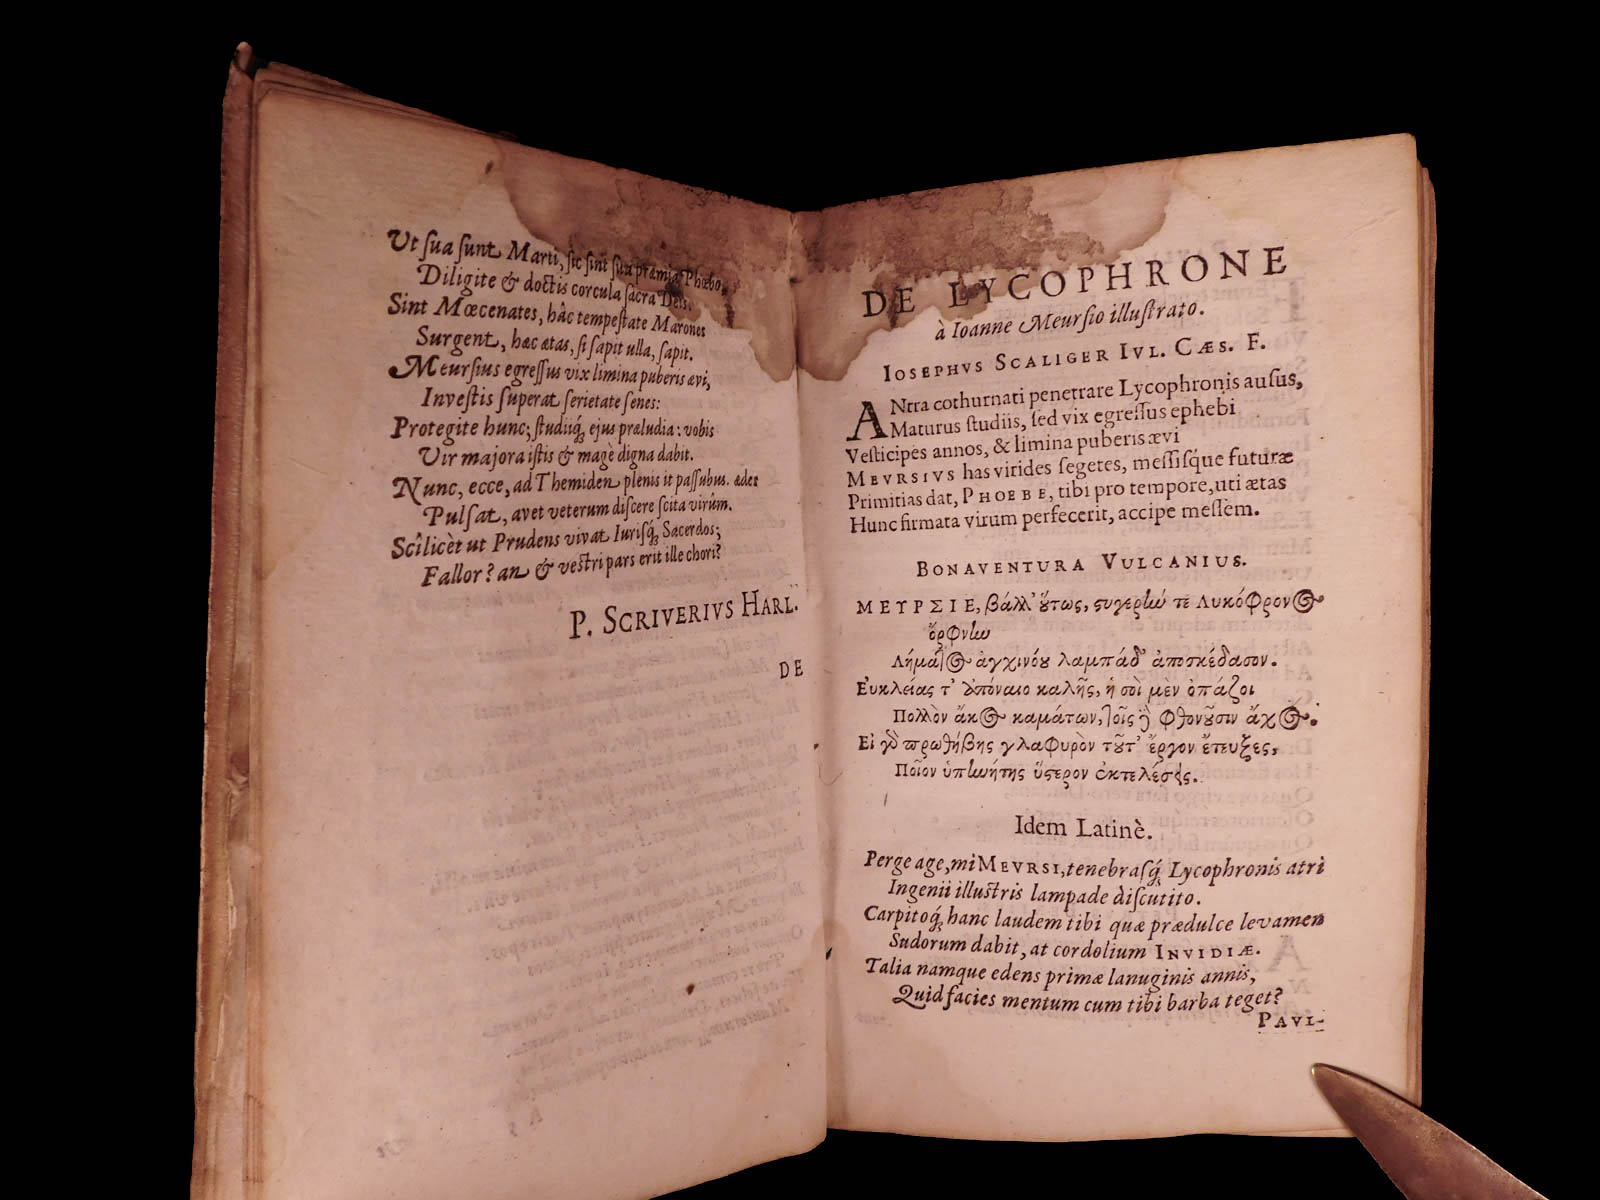 Ut ſua ſunt Marti, ſic ſint ſua præmia Phœbo,
Diligite & doctis corcula ſacra Deis.
Sint Mœcenates, hâc tempeſtate Marones
Surgent, hæc ætas, ſi ſapit ulla, ſapit.
Meurſius egreſſus vix limina puberis ævi,
Inveſtis ſuperat ſerietate ſenes:
Protegite hunc; ſtudiiq́; ejus præludia: vobis
Vir majora iſtis & magè digna dabit.
Nunc, ecce, ad Themiden plenis it paſſubus. ædes
Pulſat, avet veterum diſcere ſcita virûm.
Scîlicèt ut Prudens vivat Iuriſq́; Sacerdos;
Fallor? an & veſtri pars erit ille chori?
P. SCRIVERIVS HARL.
DE
DE LYCOPHRONE
à Ioanne Meurſio illuſtrato.
IOSEPHVS SCALIGER IVL. CÆS. F.
ANtra cothurnati penetrare Lycophronis auſus,
Maturus ſtudiis, ſed vix egreſſus ephebi
Veſticipes annos, & limina puberis ævi
MEVRSIVS has virides ſegetes, meſſiſque futuræ
Primitias dat, PHOEBE, tibi pro tempore, uti ætas
Hunc firmata virum perfecerit, accipe meſſem.
BONAVENTURA VULCANIUS.
ΜΕΥΡΣΙΕ, βάλλ' οὕτως, ϛυγερὴν τε Λυκόφρον
ὄρφνην
Λήματος ἀγχινόου λαμπάδ' ἀποσκέδασον.
Εὐκλείας τ' ἀπόναιο καλῆς, ἡ σοὶ μὲν ὀπάζοι
Πολλὸν ἄκος καμάτων, τοῖς ἢ φθονοῦσιν ἄχος.
Εἰ γὰρ πρωθήβης γλαφυρὸν τοῦτ' ἔργον ἔτευξες,
Ποῖον ὑπηνήτης ὕϛερον ἐκτελέσεις.
Idem Latinè.
Perge age, mi MEVRSI, tenebraſq́; Lycophronis atri
Ingenii illuſtris lampade diſcutito.
Carpitoq́; hanc laudem tibi quæ prædulce levamen
Sudorum dabit, at cordolium INVIDIÆ.
Talia namque edens primæ lanuginis annis,
Quid facies mentum cum tibi barba teget?
PAVI-